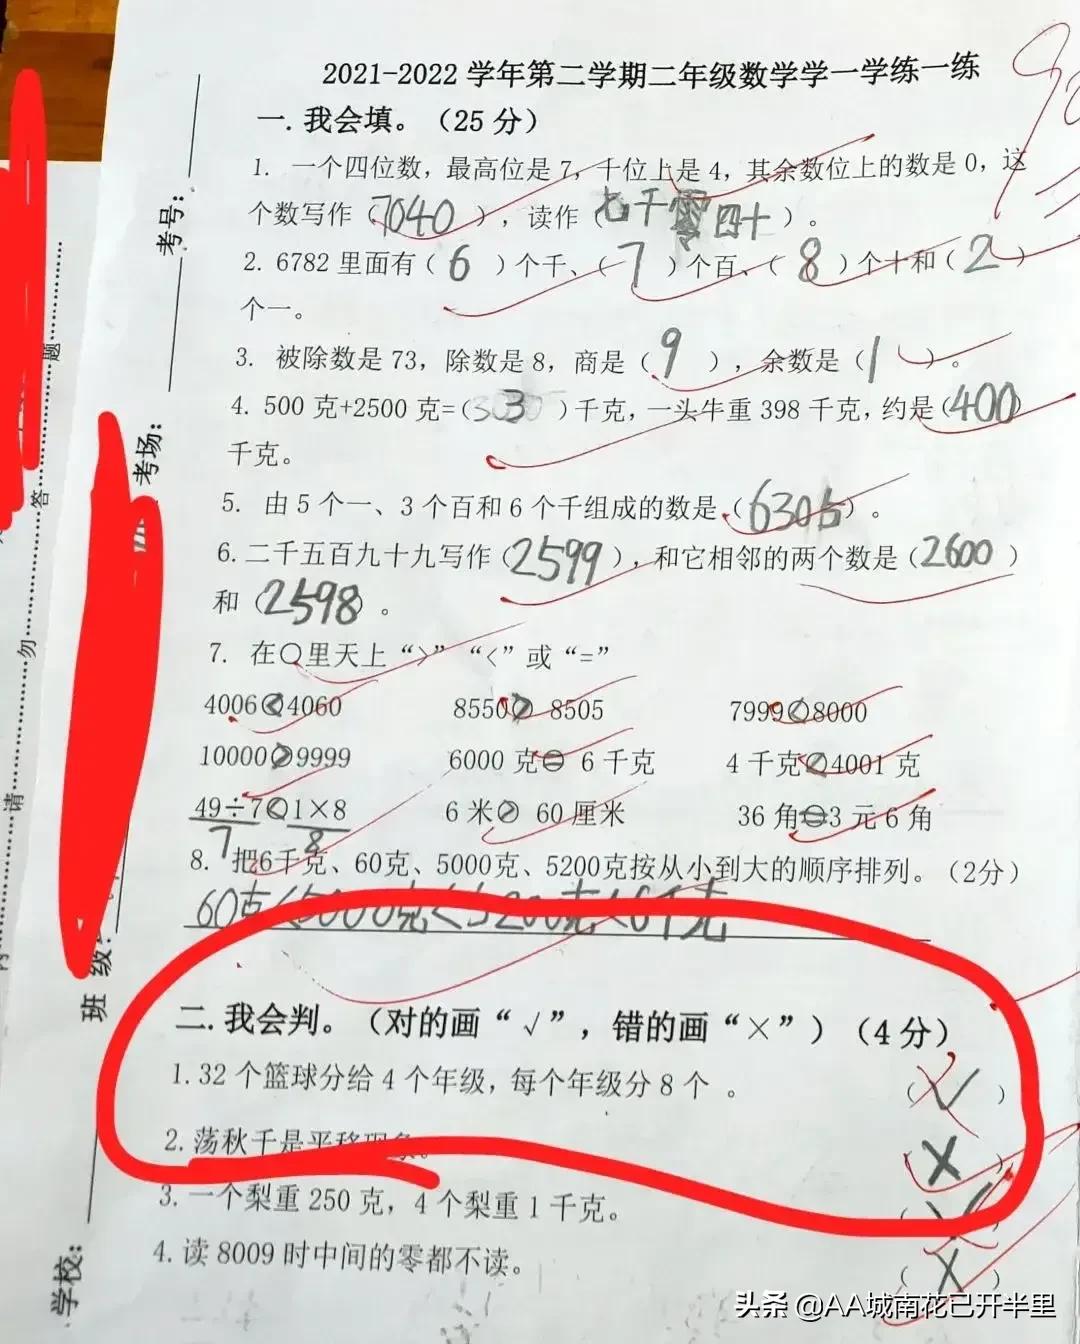 2021-2022 学年第二学期二年级数学学一学练一练
一. 我会填。（25 分）
1. 一个四位数，最高位是 7，千位上是 4，其余数位上的数是 0，这
个数写作（7040），读作（七千零四十）。
2. 6782 里面有（6）个千、（7）个百、（8）个十和（2）
个一。
3. 被除数是 73，除数是 8，商是（9），余数是（1）。
4. 500 克+2500 克=（3）千克，一头牛重 398 千克，约是（400）
千克。
5. 由 5 个一、3 个百和 6 个千组成的数是（6305）。
6. 二千五百九十九写作（2599），和它相邻的两个数是（2600）
和（2598）。
7. 在○里天上“>”“<”或“=”
4006<4060 8550>8505 7999<8000
10000>9999 6000 克=6 千克 4 千克<4001 克
49÷7<1×8 6 米>60 厘米 36 角=3 元 6 角
7 8
8. 把6千克、60克、5000克、5200克按从小到大的顺序排列。（2分）
60克<5000克<5200克<6千克
二. 我会判。（对的画“√”，错的画“×”）（4 分）
1.32 个篮球分给 4 个年级，每个年级分 8 个 。（√）
2. 荡秋千是平移现象。（×）
3. 一个梨重 250 克，4 个梨重 1 千克。（√）
4. 读 8009 时中间的零都不读。（×）
学校：
班级：
考场：
考号：
请
勿
答
题
头条 @AA城南花已开半里